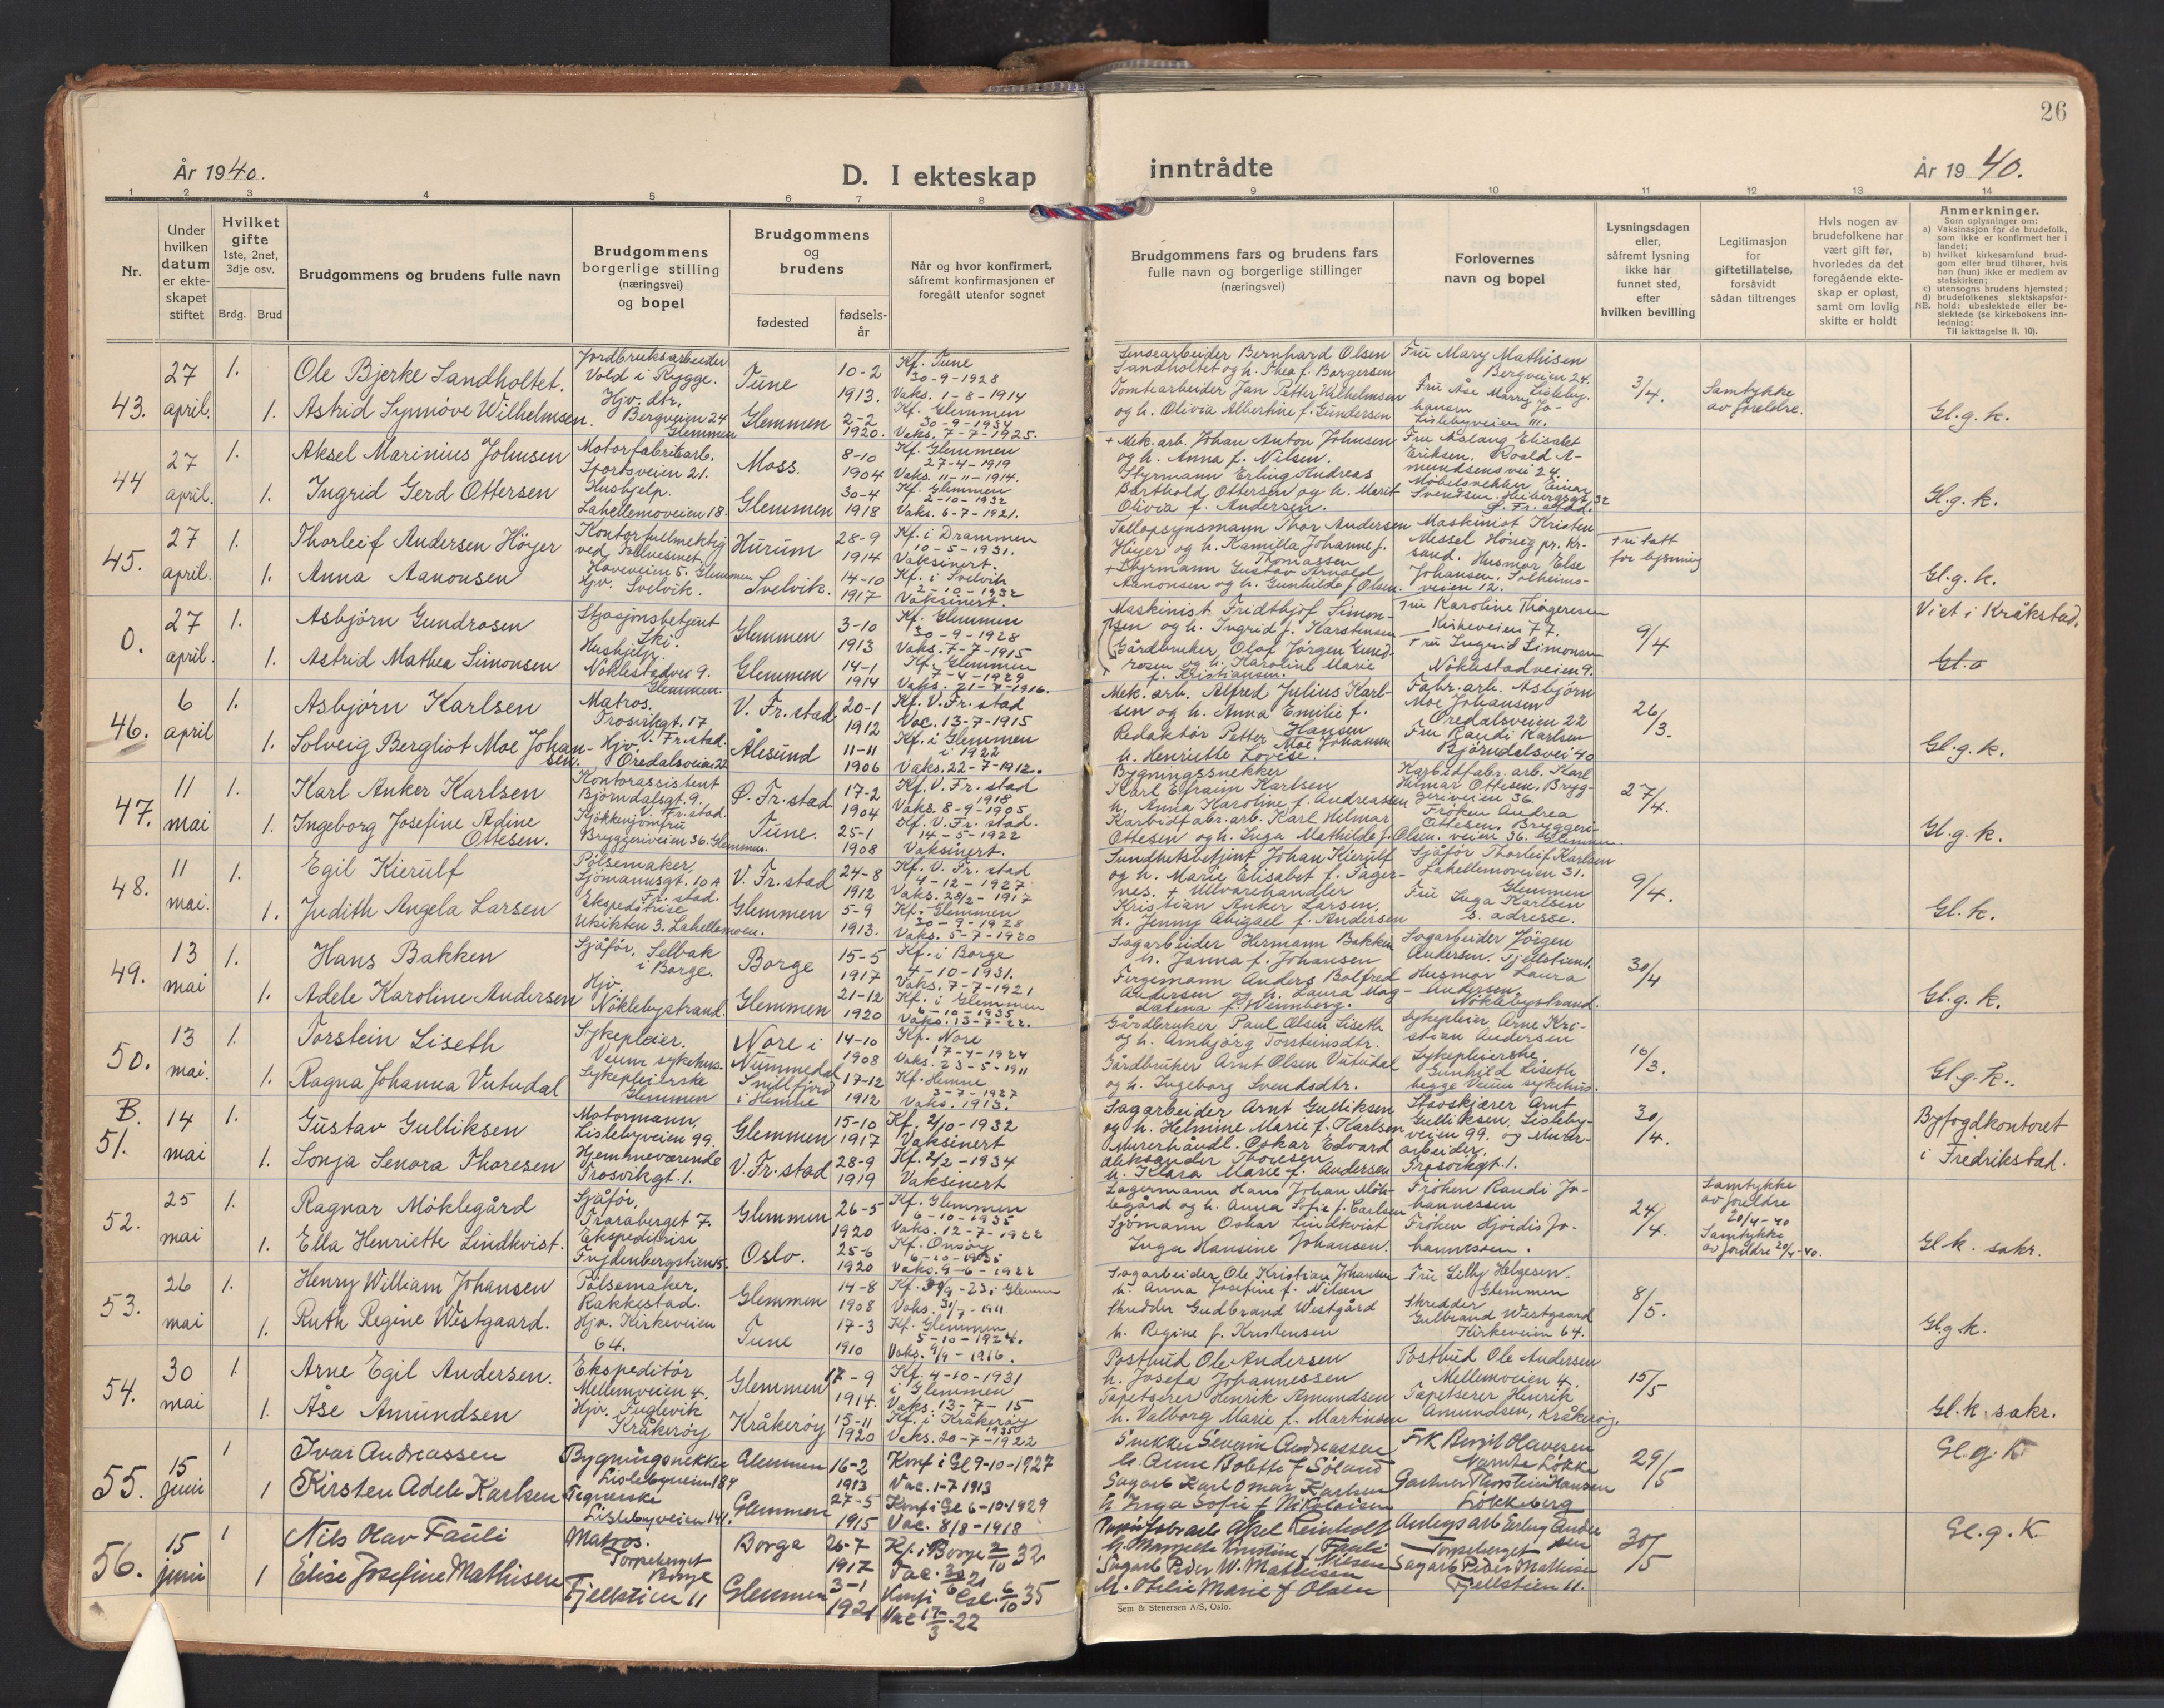 26
År 1940.
D. I ekteskap inntrådte
År 1940.
1 2 3 4 5 6 7 8 9 10 11 12 13 14
Nr.
Under hvilken datum er ekteskapet stiftet
Hvilket gifte 1ste, 2net, 3dje osv.
Brdg. Brud
Brudgommens og brudens fulle navn
Brudgommens borgerlige stilling (næringsvei) og bopel
Brudgommens og brudens
fødested
fødselsår
Når og hvor konfirmert, såfremt konfirmasjonen er foregått utenfor sognet
Brudgommens fars og brudens fars fulle navn og borgerlige stillinger (næringsvei)
Forlovernes navn og bopel
Lysningsdagen eller, såfremt lysning ikke har funnet sted, efter hvilken bevilling
Legitimasjon for giftetillatelse, forsåvidt sådan tiltrenges
Hvis nogen av brudefolkene har vært gift før, hvorledes da det foregående ekteskap er opløst, samt om lovlig skifte er holdt
Anmerkninger.
Som oplysninger om:
a) Vaksinasjon for de brudefolk, som ikke er konfirmert her i landet;
b) hvilket kirkesamfund brudgom eller brud tilhører, hvis han (hun) ikke er medlem av statskirken;
c) utensogns brudens hjemsted;
d) brudefolkenes slektskapsforhold: ubeslektede eller beslektede (se kirkebokens innledning:
NB.
Til iakttagelse II. 10).
43. 27 april. 1. 1.
Ole Bjerke Sandholtet.
Astrid Synnöve Wilhelmsen.
Jordbruksarbeider
Vold i Rygge.
Hjv. dtr.
Bergveien 24
Glemmen
Tune 10-2 1913.
Glemmen 2-2 1920.
Kf. Tune
30-9-1928
Vaks. 1-8-1914
Kf. Glemmen
30-9-1934
Vaks. 7-7-1925.
Lensearbeider Bernhard Olsen
Sandholtet og h. Thea f. Borgersen
Tomtearbeider Jan Petter Wilhelmsen
og h. Olivia Albertine f. Gundersen
Fru Mary Mathisen
Bergveien 24.
Fru Åse Marry Jo-
hansen Lisleby.
Lislebyveien 111.
3/4.
Samtykke
av foreldre.
Gl. g. k.
44 27 april. 1. 1.
Aksel Marinius Johnsen
Ingrid Gerd Ottersen
Motorfabrikarb.
Sportsveien 21.
Hushjelp.
Lahellemoveien 18.
Moss. 8-10 1904
Glemmen 30-4 1918
Kf. Glemmen
27-4-1919
Vaks. 11-11-1914.
Kf. Glemmen
2-10-1932
Vaks. 6-7-1921.
+ Mek. arb. Johan Anton Johnsen
og h. Anna f. Nilsen.
Styrmann Erling Andreas
Barthold Ottersen og h. Marit
Olivia f. Andersen.
Fru Aslaug Elisabet
Eriksen. Roald A-
mundsens vei 24.
Möbelsnekker Einar
Svendsen. Heibergsgt. 32
Ø. Fr. stad.
Gl. g. k.
45. 27 april. 1. 1.
Thorleif Andersen Höyer
Anna Aanonsen
Kontorfullmektig
ved Tollvesenet
Haveveien 5. Glemmen
Hjv. Svelvik.
Hurum 28-9 1914
Svelvik. 14-10 1917
Kf. i Drammen
10-5-1931.
Vaksinert.
Kf. i Svelvik
2-10-1932
Vaksinert.
Tollopsynsmann Thor Andersen
Höyer og h. Kamilla Johanne f.
Thomassen
+ Styrmann Gustav Arnold
Aanonsen og h. Gunhilde f. Olsen.
Maskinist Kristen
Messel Hönig pr. Kr-
sand. Husmor Else
Johansen. Solheims-
veien 12.
Fritatt
for lysning
Gl. g. k.
0. 27 april. 1. 1.
Asbjörn Gundrosen
Astrid Mathea Simonsen
Stasjonsbetjent
Ski.
Hushjelp.
Nöklestadvei 9.
Glemmen.
Glemmen 3-10 1913
Glemmen 14-1 1914
Kf. Glemmen
30-9-1928
Vaks. 7-7-1915
Kf. Glemmen
7-4-1929
Vaks. 21-7-1916.
Maskinist Fridthjof Simon-
sen og h. Ingrid f. Karstensen
Gårdbruker Olaf Jörgen Gund-
rosen og h. Karoline Marie
f. Kristiansen.
Fru Karoline Thögersen
Kirkeveien 77.
Fru Ingrid Simonsen
Nöklestadveien 9.
9/4
Viet i Kråkstad.
Gl. o
46. 6 april 1. 1.
Asbjörn Karlsen
Solveig Bergliot Moe Johan-
sen.
Matros.
Trosvikgt. 17
V. Fr. stad.
Hjv.
Oredalsveien 22
V. Fr. stad 20-1 1912
Ålesund 11-11 1906
Kf. V. Fr. stad
Vac. 13-7-1915
Kf. i Glemmen
i 1922
Vaks. 22-7-1912.
Mek. arb. Alfred Julius Karl-
sen og h. Anna Emilie f.
Hansen
Redaktör Petter Moe Johansen
h. Henriette Lovise.
Fabr. arb. Asbjörn
Moe Johansen
Oredalsveien 22
Fru Randi Karlsen
Björndalsvei 40
26/3.
Gl. g. k.
47. 11 mai 1. 1.
Karl Anker Karlsen
Ingeborg Josefine Adine
Ottesen.
Kontorassistent
Björndalsgt. 9.
V. Fr. stad.
Kjökkenjomfru
Bryggeriveien 36. Glemmen.
Ø. Fr. stad 17-2 1904
Tune. 25-1 1908
Kf. V. Fr. stad
1918
Vaks. 8-9-1905
Kf. V. Fr. stad.
14-5-1922
Vaksinert.
Bygningssnekker
Karl Efraim Karlsen
h. Anna Karoline f. Andreassen
Karbidfabr. arb. Karl Helmar
Ottesen og h. Inga Mathilde f. Olsen.
Karbidfabr. arb. Karl
Helmar Ottesen. Bryg-
geriveien 36.
Fröken Andrea
Ottesen. Bryggeri-
veien 36. Glemmen.
27/4.
Gl. g. k.
48. 11 mai. 1. 1.
Egil Kierulf
Judith Angela Larsen
Pölsemaker,
Sjömannsgt. 10 A
Fr. stad.
Ekspeditrise
Utsikten 3. Lahellemoen.
V. Fr. stad 24-8 1912
Glemmen 5-9 1913.
Kf. V. Fr. stad
4-12-1927
Vaks. 28/2-1917
Kf. Glemmen
30-9-1928
Vaks. 5-7-1920
Sundhetsbetjent Johan Kierulf
og h. Marie Elisabet f. Fager-
nes. + Ullvarehandler
Kristian Anker Larsen,
h. Jenny Abigael f. Andersen
Sjåför Thorleif Karlsen
Lahellemoveien 31.
Glemmen
Fru Inga Karlsen
s. adresse.
9/4.
Gl. k.
49. 13 mai 1. 1.
Hans Bakken
Adele Karoline Andersen
Sjåför, Selbak
i Borge.
Hjv.
Nöklebystrand.
Borge 15-5 1917
Glemmen 21-12 1920
Kf. i Borge
4-10-1931.
Vaks. 7-7-1921
Kf. i Glemmen
6-10-1935
Vaks. 13-7-22.
Sagarbeider Hermann Bakken
h. Janna f. Johansen
Fergemann Anders Bolfred
Andersen og h. Laura Mag-
dalena f. Wennberg.
Sagarbeider Jörgen
Andersen. Fjellstien 1.
Husmor Laura
Andersen.
Nöklebystrand.
30/4
Gl. g. k.
50. 13 mai. 1. 1.
Torstein Liseth
Ragna Johanna Vutudal
Sykepleier.
Veum sykehus.
Sykepleierske
Glemmen
Nore i
Nummedal 14-10 1908
Snillfjord
i Hemne 17-12 1912
Kf. Nore
17-4-1924
Vaks. 23-5-1911
Kf. Hemne
3-7-1927
Vaks. 1913.
Gårdbruker Paul Olsen Liseth
og h. Ambjörg Torsteinsdtr.
Gårdbruker Arnt Olsen Vutudal
og h. Ingeborg Svendsdtr.
Sykepleier Arne Kri-
stian Andersen
Sykepleierske
Gunhild Liseth
begge Veum sykehus.
16/3.
Gl. g. k.
B.
51. 14 mai 1. 1.
Gustav Gulliksen
Sonja Senora Thoresen
Motormann,
Lislebyveien 99.
Hjemmeværende
Trosvikgt. 1.
Glemmen 15-10 1917
V. Fr. stad 28-9 1919
Kf. 2/10-1932
Vaksinert
Kf. 2/2-1934
Vaksinert
Sagarbeider Arnt Gulliksen
og h. Helmine Marie f. Karlsen
Murerhåndl. Oskar Edvard
Aleksander Thoresen,
h. Klara Marie f. Andersen
Stavskjærer Arnt
Gulliksen, Lisleby-
veien 99. og Murer-
arbeider.
Trosvikgt. 1.
30/4.
Byfogdkontoret
i Fredrikstad.
52. 25 mai 1. 1.
Ragnar Möklegård
Ella Henriette Lindkvist.
Sjåför,
Traraberget 7.
Ekspeditrise
Frydenbergstien 5.
Glemmen 26-5 1920
Oslo. 25-6 1920
Kf. Glemmen
6-10-1935
Vaks. 12-7-1922
Kf. Onsöy
6-10-1935
Vaks. 9-6-1922
Lagermann Hans Johan Mök-
legård og h. Anna Sofie f. Carlsen
Sjömann Oskar Lindkvist
Inga Hansine Johansen.
Fröken Randi Jo-
hannessen
Fröken Hjördis Jo-
hannessen.
24/4.
Samtykke
av foreldre
20/4-40
Samtykke
av foreldre 20/4-40.
Gl. k. sakr.
53. 26 mai 1. 1.
Henry William Johansen
Ruth Regine Westgaard.
Pölsemaker,
Rakkestad.
Hjv. Kirkeveien
64.
Glemmen 14-8 1908
Tune 17-3 1910
Kf. 30/9-23 i Glemmen
Vaks. 31/7-1911
Kf. Glemmen
5-10-1924.
Vaks. 9/9-1916.
Sagarbeider Ole Kristian Johansen
h. Anna Josefine f. Nilsen
Skredder Gudbrand Westgård
h. Regine f. Kristensen
Fru Lilly Helgesen.
Glemmen
Skredder
Gulbrand Westgaard
Kirkeveien 64.
8/5.
Gl. g. k.
54. 30 mai 1. 1.
Arne Egil Andersen.
Åse Amundsen
Ekspeditör
Mellemveien 4.
Hjv. Fuglevik
Kråkeröy
Glemmen 17-9 1914.
Kråkeröy 15-11 1920
Kf. 4-10-1931
i Glemmen
Vaks. 13-7-15
Kf. i Kråkeröy
1935
Vaks. 20-7-1922
Postbud Ole Andersen
h. Josefa Johannessen
Tapetserer Henrik Amundsen
h. Valborg Marie f. Martinsen
Postbud Ole Andersen
Mellemveien 4.
Tapetserer Henrik
Amundsen, Kråkeröy.
15/5
Gl. k. sakr.
55. 15 juni 1 1
Ivar Andreassen
Kirsten Adele Karlsen
Bygningsnekker
Lislebyveien 184
Tegnerske
Lislebyveien 141.
Glemmen 16-2 1913
Glemmen 27-5 1915
Konf i Gl 9-10-1927
Vac. 1-7 1913
Konf i Gl 6-10-1929
Vac. 8/8-1918
Snekker Severin Andreassen
h. Anne Bolette f Söland
Sagarb Karl Omar Karlsen
h Inga Sofie f Nikolaisen
Frk Bergit Olavesen
Nambe Lökke
Gartner Thorstein Hansen
Lökkeberg
29/5
Gl. g. K
56. 15 juni 1 1
Nils Olav Fauli
Elise Josefine Mathisen
Matros.
Torpeberget
Borge
Fjellstien 11
Borge 26-7 1917
Glemmen 3-1 1921
Kf. i Borge 2/10 32
Vac. 30/6 21
Konf i Gl. 6/10 35
Vac 17/3-22
Papirfabrarb Aksel Reinholt
Fauli
h. Margrethe Kristine f Nilsen
Sagarb Peder W. Mathisen
M. Otelie Marie f Olsen
Anlegsarb Erling Andersen
Torpeberget
Sagarb Peder Mathisen
Fjellstien 11.
30/5
Gl. g. K.
Sem & Stenersen A/S, Oslo.